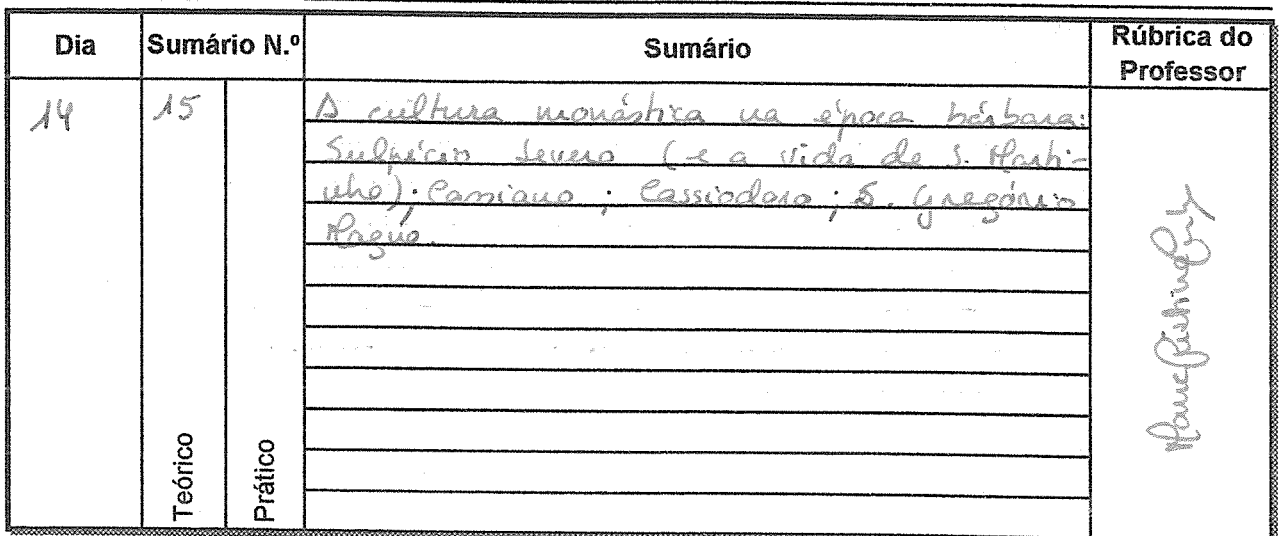 Dia Sumário N.º Sumário Rúbrica do Professor
14 15 A cultura monástica na época bárbara:
Sulpício Severo (e a vida de S. Marti-
nho); Cassiano; Cassiodoro; S. Gregório
Magno.
Teórico Prático